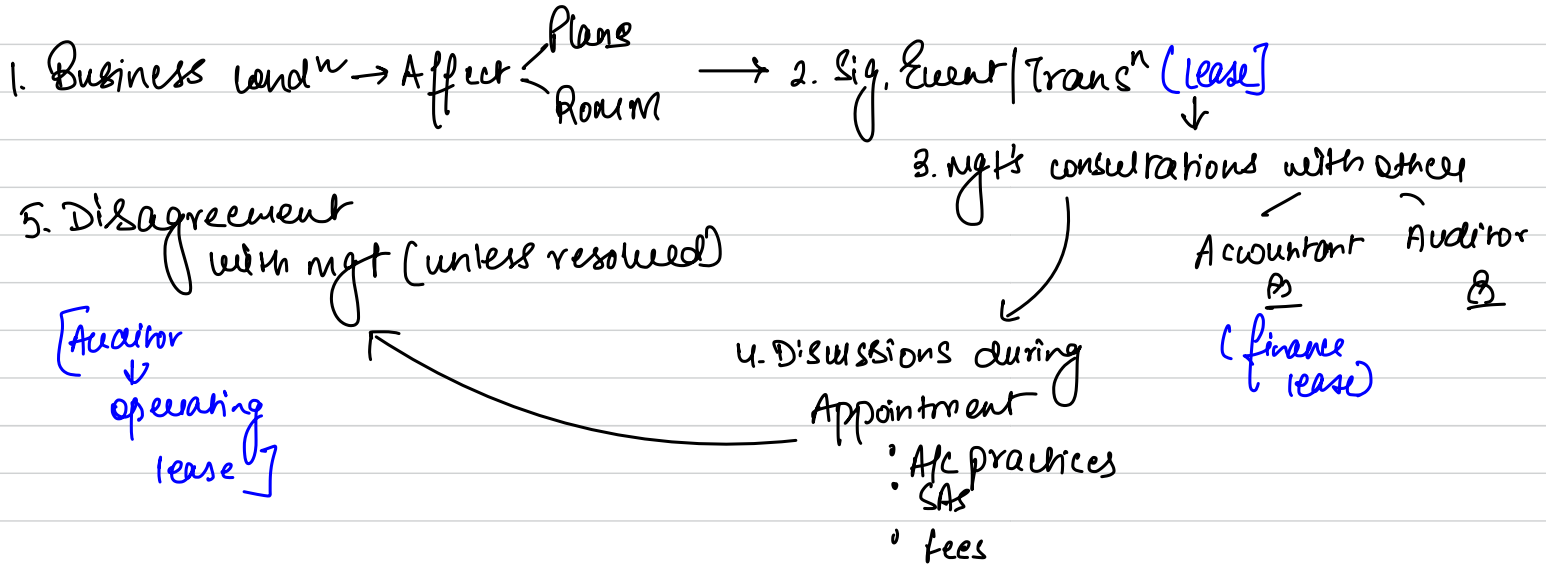 1. Business Condn → Affect Plans
ROMM
→ 2. Sig. Event/Transn (lease]
3. Mgt's consultations with others
Accountant Auditor
(finance
lease)
4. Discussions during
Appointment
• A/C practices
• SAs
• fees
5. Disagreement
with mgt (unless resolved)
[Auditor
↓
operating
lease]